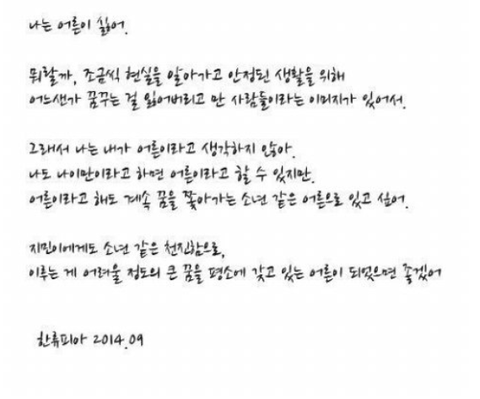 나는 어른이 싫어.
뭐랄까, 조금씩 현실을 알아가고 안정된 생활을 위해
어느샌가 꿈꾸는 걸 잃어버리고 만 사람들이라는 이미지가 있어서.
그래서 나는 내가 어른이라고 생각하지 않아.
나도 나이만이라고 하면 어른이라고 할 수 있지만.
어른이라고 해도 계속 꿈을 쫓아가는 소년 같은 어른으로 있고 싶어.
지민이에게도 소년 같은 천진함으로,
이루는 게 어려울 정도의 큰 꿈을 평소에 갖고 있는 어른이 되었으면 좋겠어
한류피아 2014.09